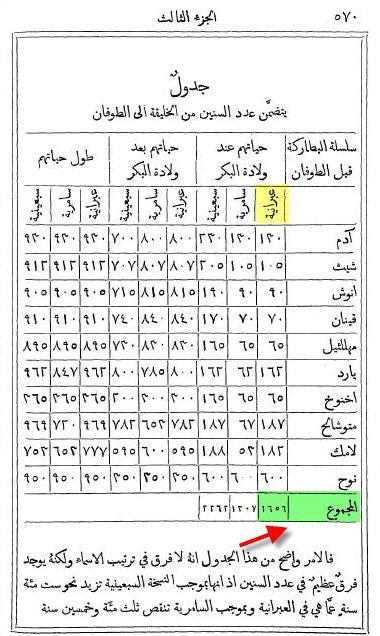 ٥٧٠
الجزء الثالث
جدول
يتضمَّن عدد السنين من الخليقة الى الطوفان
سلسلة البطاركة قبل الطوفان
حياتهم عند ولادة البكر
حياتهم بعد ولادة البكر
طول حياتهم
عبرانية سامرية سبعينية عبرانية سامرية سبعينية عبرانية سامرية سبعينية
آدم ١٣٠ ١٣٠ ٢٣٠ ٨٠٠ ٨٠٠ ٧٠٠ ٩٣٠ ٩٣٠ ٩٣٠
شيث ١٠٥ ١٠٥ ٢٠٥ ٨٠٧ ٨٠٧ ٧٠٧ ٩١٢ ٩١٢ ٩١٢
انوش ٩٠ ٩٠ ١٩٠ ٨١٥ ٨١٥ ٧١٥ ٩٠٥ ٩٠٥ ٩٠٥
قينان ٧٠ ٧٠ ١٧٠ ٨٤٠ ٨٤٠ ٧٤٠ ٩١٠ ٩١٠ ٩١٠
مهللئيل ٦٥ ٦٥ ١٦٥ ٨٣٠ ٨٣٠ ٧٣٠ ٨٩٥ ٨٩٥ ٨٩٥
يارد ١٦٢ ٦٢ ١٦٢ ٨٠٠ ٧٨٥ ٨٠٠ ٩٦٢ ٨٤٧ ٩٦٢
اخنوخ ٦٥ ٦٥ ١٦٥ ٣٠٠ ٣٠٠ ٢٠٠ ٣٦٥ ٣٦٥ ٣٦٥
متوشالح ١٨٧ ٦٧ ١٨٧ ٧٨٢ ٦٥٣ ٧٨٢ ٩٦٩ ٧٢٠ ٩٦٩
لامك ١٨٢ ٥٣ ١٨٨ ٥٩٥ ٦٠٠ ٥٩٥ ٧٧٧ ٦٥٣ ٧٥٣
نوح ٦٠٠ ٦٠٠ ٦٠٠ ٣٥٠ ٣٥٠ ٣٥٠ ٩٥٠ ٩٥٠ ٩٥٠
المجموع ١٦٥٦ ١٣٠٧ ٢٢٦٢
فالامر واضح من هذا الجدول انهُ لا فرق في ترتيب الاسماء ولكنهُ يوجد
فرق عظيم في عدد السنين اذ انها بموجب النسخة السبعينية تزيد نحو ست مئة
سنةٍ عمَّا هي في العبرانية وبموجب السامرية تنقص ثلث مئة وخمسين سنة